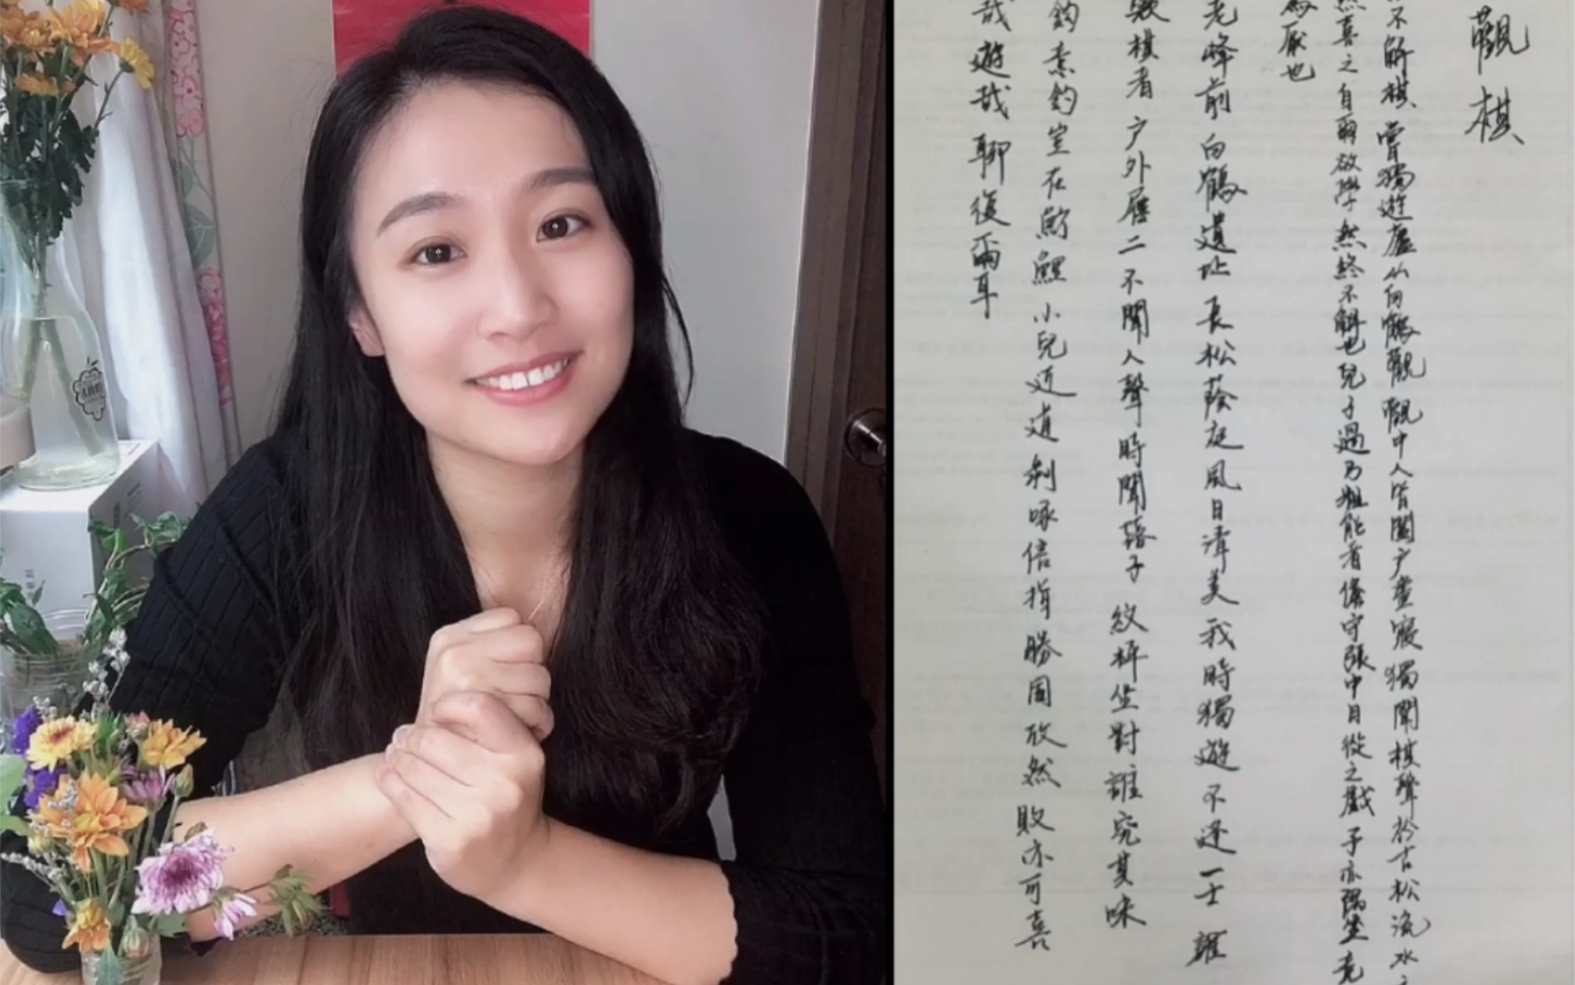 觀棋
不解棋嘗獨遊廬山白鶴觀觀中人皆闔户晝寢獨聞棋聲於古松流水
然喜之自爾欲學然終不解也兒子過乃粗能者儋守張中日從之戲予亦隅坐竟
為厭也
老峰前白鶴遺址長松蔭庭風日清美我時獨遊不逢一士誰
歟棋者户外屨二不聞人聲時聞落子紋枰坐對誰究其味
鈎意釣豈在魴鯉小兒近道剝啄信指勝固欣然敗亦可喜
哉遊哉聊復爾耳